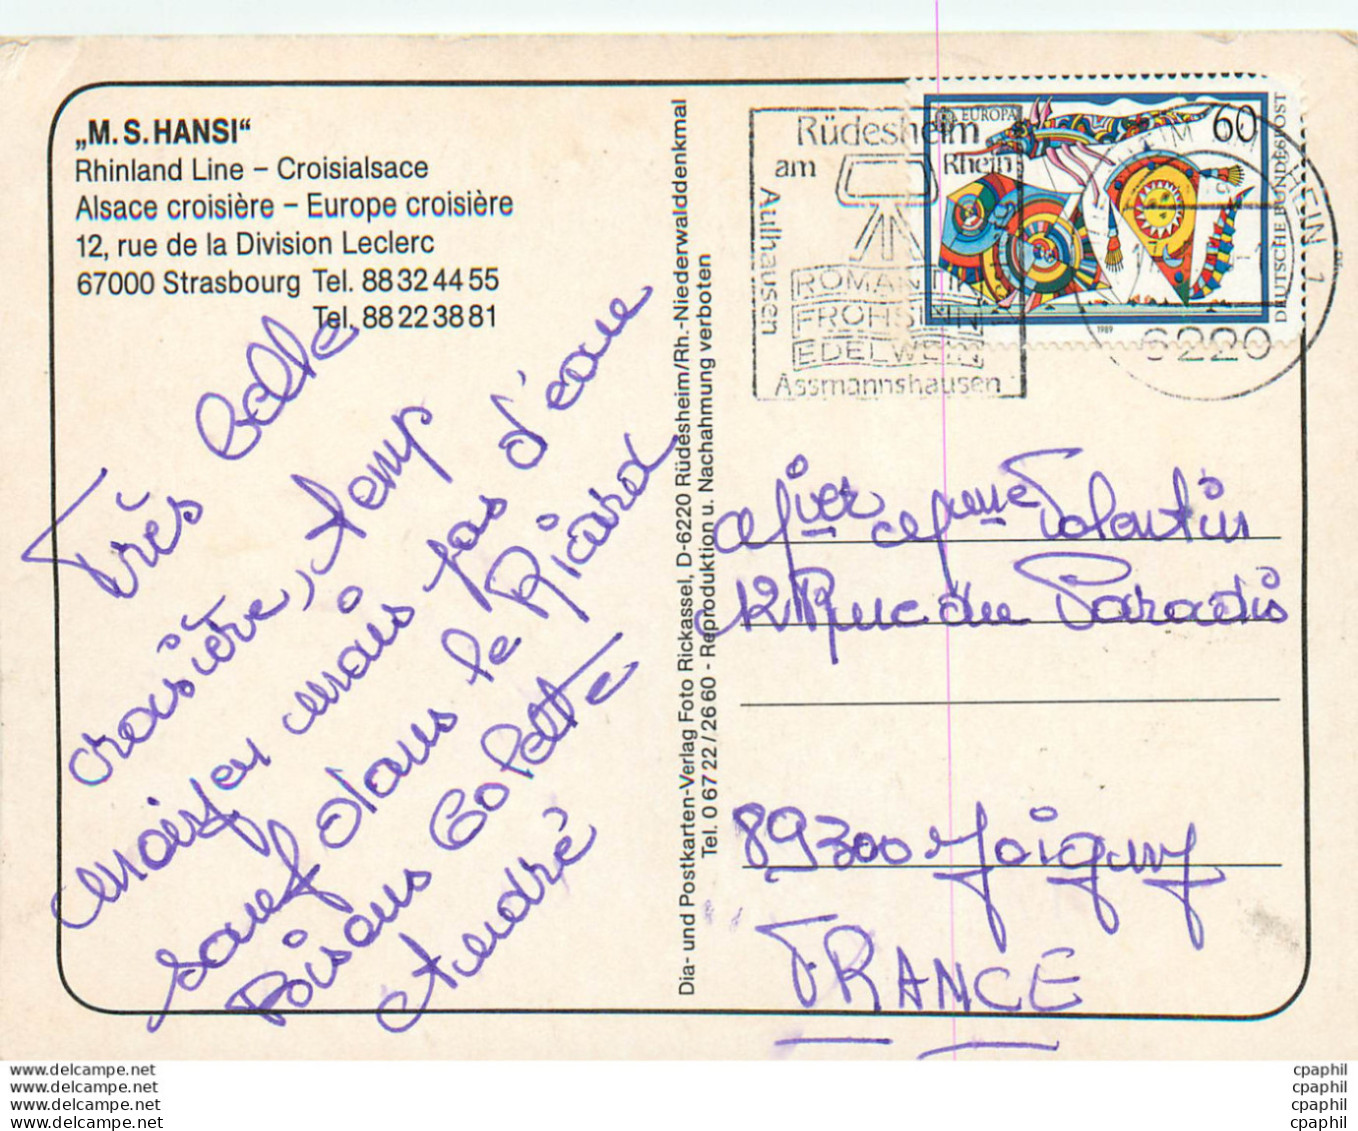 „M.S. HANSI“
Rhinland Line – Croisialsace
Alsace croisière – Europe croisière
12, rue de la Division Leclerc
67000 Strasbourg Tel. 88 32 44 55
Tel. 88 22 38 81
Très belle
croisière, temp
moyen mais pas d'eau
sauf dans le Ricard
Bisous Colette
André
Dia- und Postkarten-Verlag Foto Rickassel, D-6220 Rüdesheim/Rh.-Niederwalddenkmal
Tel. 0 67 22 / 26 60 - Reproduktion u. Nachahmung verboten
Rüdesheim
am Rhein
Aulhausen
ROMANTIK
FROHSINN
EDELWEIN
Assmannshausen
EUROPA
60
DEUTSCHE BUNDESPOST
1989
RHEIN 1
6220
12 Rue du Paradis
89300 Joigny
FRANCE
www.delcampe.net
www.delcampe.net
www.delcampe.net
www.delcampe.net
cpaphil
cpaphil
cpaphil
cpaphil